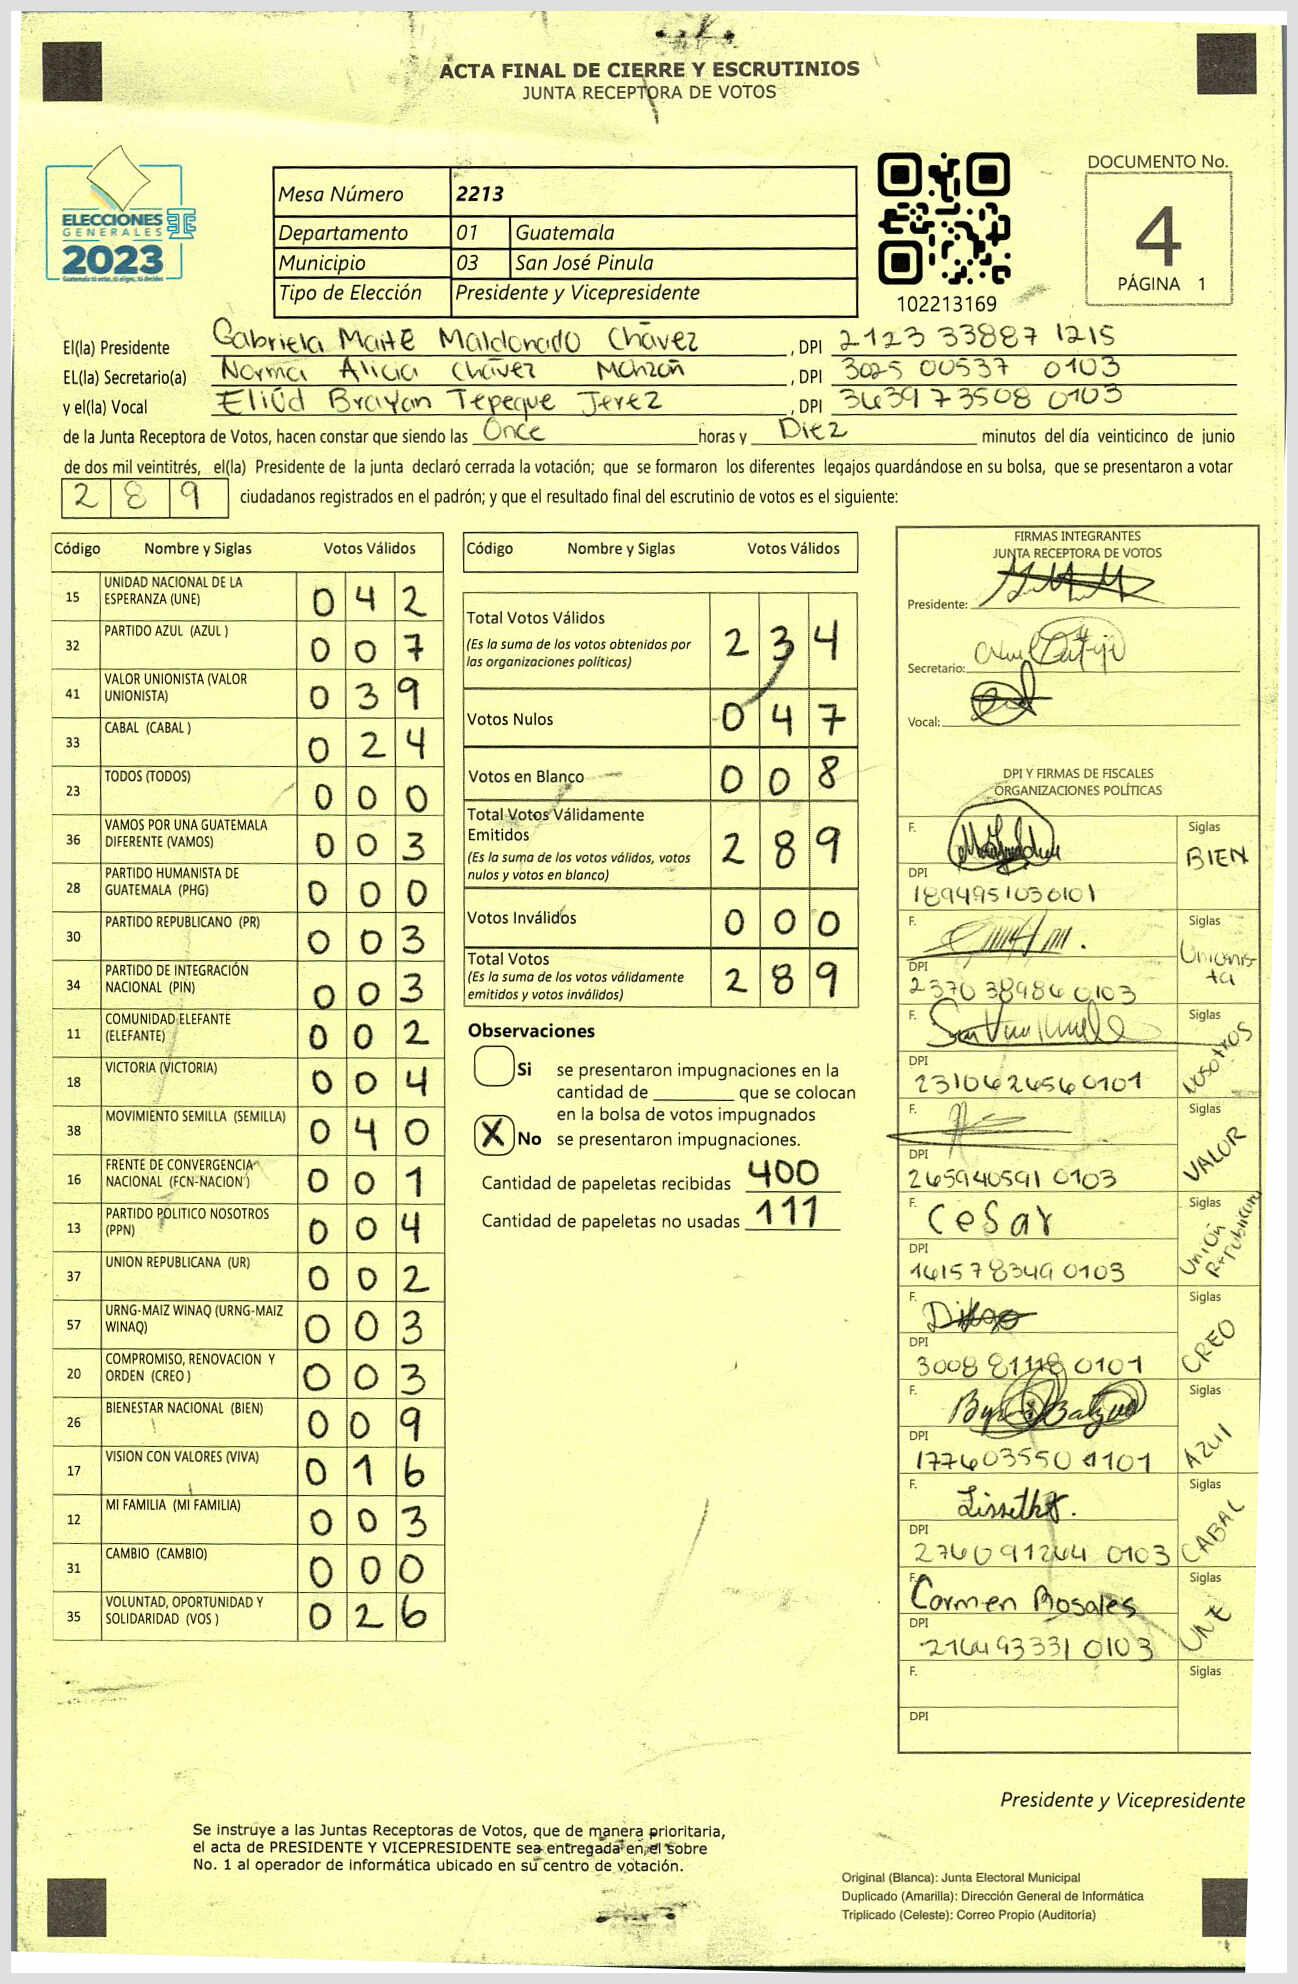 ACTA FINAL DE CIERRE Y ESCRUTINIOS
JUNTA RECEPTORA DE VOTOS
ELECCIONES
GENERALES
2023
Mesa Número 2213
Departamento 01 Guatemala
Municipio 03 San José Pinula
Tipo de Elección Presidente y Vicepresidente
102213169
DOCUMENTO No.
4
PÁGINA 1
El(la) Presidente Gabriela Maité Maldonado Chávez , DPI 2123 33887 1215
EL(la) Secretario(a) Norma Alicia Chávez Monzón , DPI 3025 00537 0103
y el(la) Vocal Eliúd Brayan Tepeque Jerez , DPI 3639 73508 0103
de la Junta Receptora de Votos, hacen constar que siendo las Once horas y Diez minutos del día veinticinco de junio
de dos mil veintitrés, el(la) Presidente de la junta declaró cerrada la votación; que se formaron los diferentes legajos quardándose en su bolsa, que se presentaron a votar
289 ciudadanos registrados en el padrón; y que el resultado final del escrutinio de votos es el siguiente:
Código Nombre y Siglas Votos Válidos
15 UNIDAD NACIONAL DE LA ESPERANZA (UNE) 042
32 PARTIDO AZUL (AZUL ) 007
41 VALOR UNIONISTA (VALOR UNIONISTA) 039
33 CABAL (CABAL ) 024
23 TODOS (TODOS) 000
36 VAMOS POR UNA GUATEMALA DIFERENTE (VAMOS) 003
28 PARTIDO HUMANISTA DE GUATEMALA (PHG) 000
30 PARTIDO REPUBLICANO (PR) 003
34 PARTIDO DE INTEGRACIÓN NACIONAL (PIN) 003
11 COMUNIDAD ELEFANTE (ELEFANTE) 002
18 VICTORIA (VICTORIA) 004
38 MOVIMIENTO SEMILLA (SEMILLA) 040
16 FRENTE DE CONVERGENCIA NACIONAL (FCN-NACION ) 001
13 PARTIDO POLITICO NOSOTROS (PPN) 004
37 UNION REPUBLICANA (UR) 002
57 URNG-MAIZ WINAQ (URNG-MAIZ WINAQ) 003
20 COMPROMISO, RENOVACION Y ORDEN (CREO ) 003
26 BIENESTAR NACIONAL (BIEN) 009
17 VISION CON VALORES (VIVA) 016
12 MI FAMILIA (MI FAMILIA) 003
31 CAMBIO (CAMBIO) 000
35 VOLUNTAD, OPORTUNIDAD Y SOLIDARIDAD (VOS ) 026
Código Nombre y Siglas Votos Válidos
Total Votos Válidos 234
(Es la suma de los votos obtenidos por
las organizaciones políticas)
Votos Nulos 047
Votos en Blanco 008
Total Votos Válidamente
Emitidos 289
(Es la suma de los votos válidos, votos
nulos y votos en blanco)
Votos Inválidos 000
Total Votos 289
(Es la suma de los votos válidamente
emitidos y votos inválidos)
Observaciones
Si se presentaron impugnaciones en la
cantidad de ________ que se colocan
en la bolsa de votos impugnados
X No se presentaron impugnaciones.
Cantidad de papeletas recibidas 400
Cantidad de papeletas no usadas 111
FIRMAS INTEGRANTES
JUNTA RECEPTORA DE VOTOS
Presidente:
Secretario:
Vocal:
DPI Y FIRMAS DE FISCALES
ORGANIZACIONES POLÍTICAS
F. Siglas BIEN
DPI 1894951030101
F. Siglas Unionista
DPI 2370 38986 0103
F. Siglas NOSOTROS
DPI 2310626560101
F. Siglas VALOR
DPI 265940591 0103
F. Cesar Siglas Unión Republicana
DPI 161578349 0103
F. Diego Siglas CREO
DPI 3008 81118 0101
F. Siglas AZUL
DPI 177603550 0101
F. Lisseth Siglas CABAL
DPI 276091264 0103
F. Carmen Rosales Siglas UNE
DPI 216493331 0103
F. Siglas
DPI
Presidente y Vicepresidente
Se instruye a las Juntas Receptoras de Votos, que de manera prioritaria,
el acta de PRESIDENTE Y VICEPRESIDENTE sea entregada en el sobre
No. 1 al operador de informática ubicado en su centro de votación.
Original (Blanca): Junta Electoral Municipal
Duplicado (Amarilla): Dirección General de Informática
Triplicado (Celeste): Correo Propio (Auditoría)